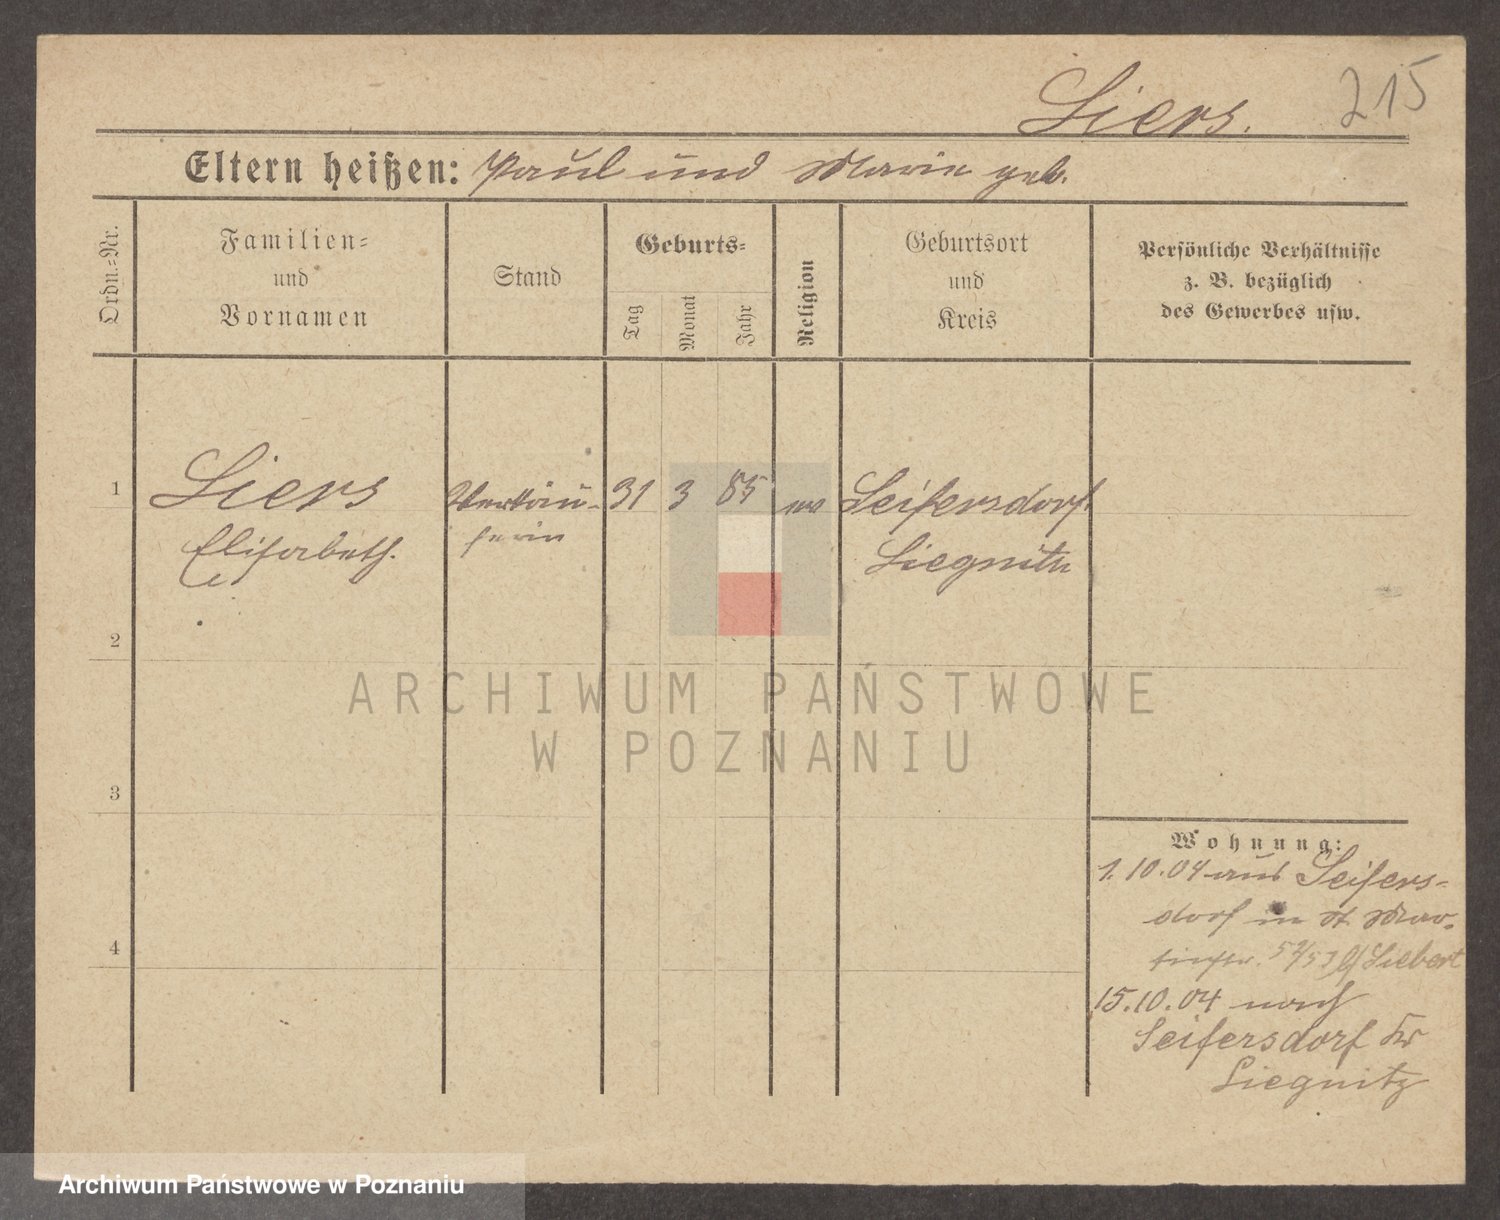 215
Liers.
Eltern heißen: Paul und Marie geb.
Ordn.-Nr.
Familien-
und
Vornamen
Stand
Geburts-
Tag
Monat
Jahr
Religion
Geburtsort
und
Kreis
Persönliche Verhältnisse
z. B. bezüglich
des Gewerbes usw.
1
Liers
Elisabeth.
Verkäu-
ferin
31 3 85
ev
Seifersdorf
Liegnitz
2
3
4
ARCHIWUM PAŃSTWOWE
W POZNANIU
Wohnung:
1.10.04 aus Seifers-
dorf in St Mar-
tinstr. b/ Siebert
15.10.04 nach
Seifersdorf Kr
Liegnitz
Archiwum Państwowe w Poznaniu